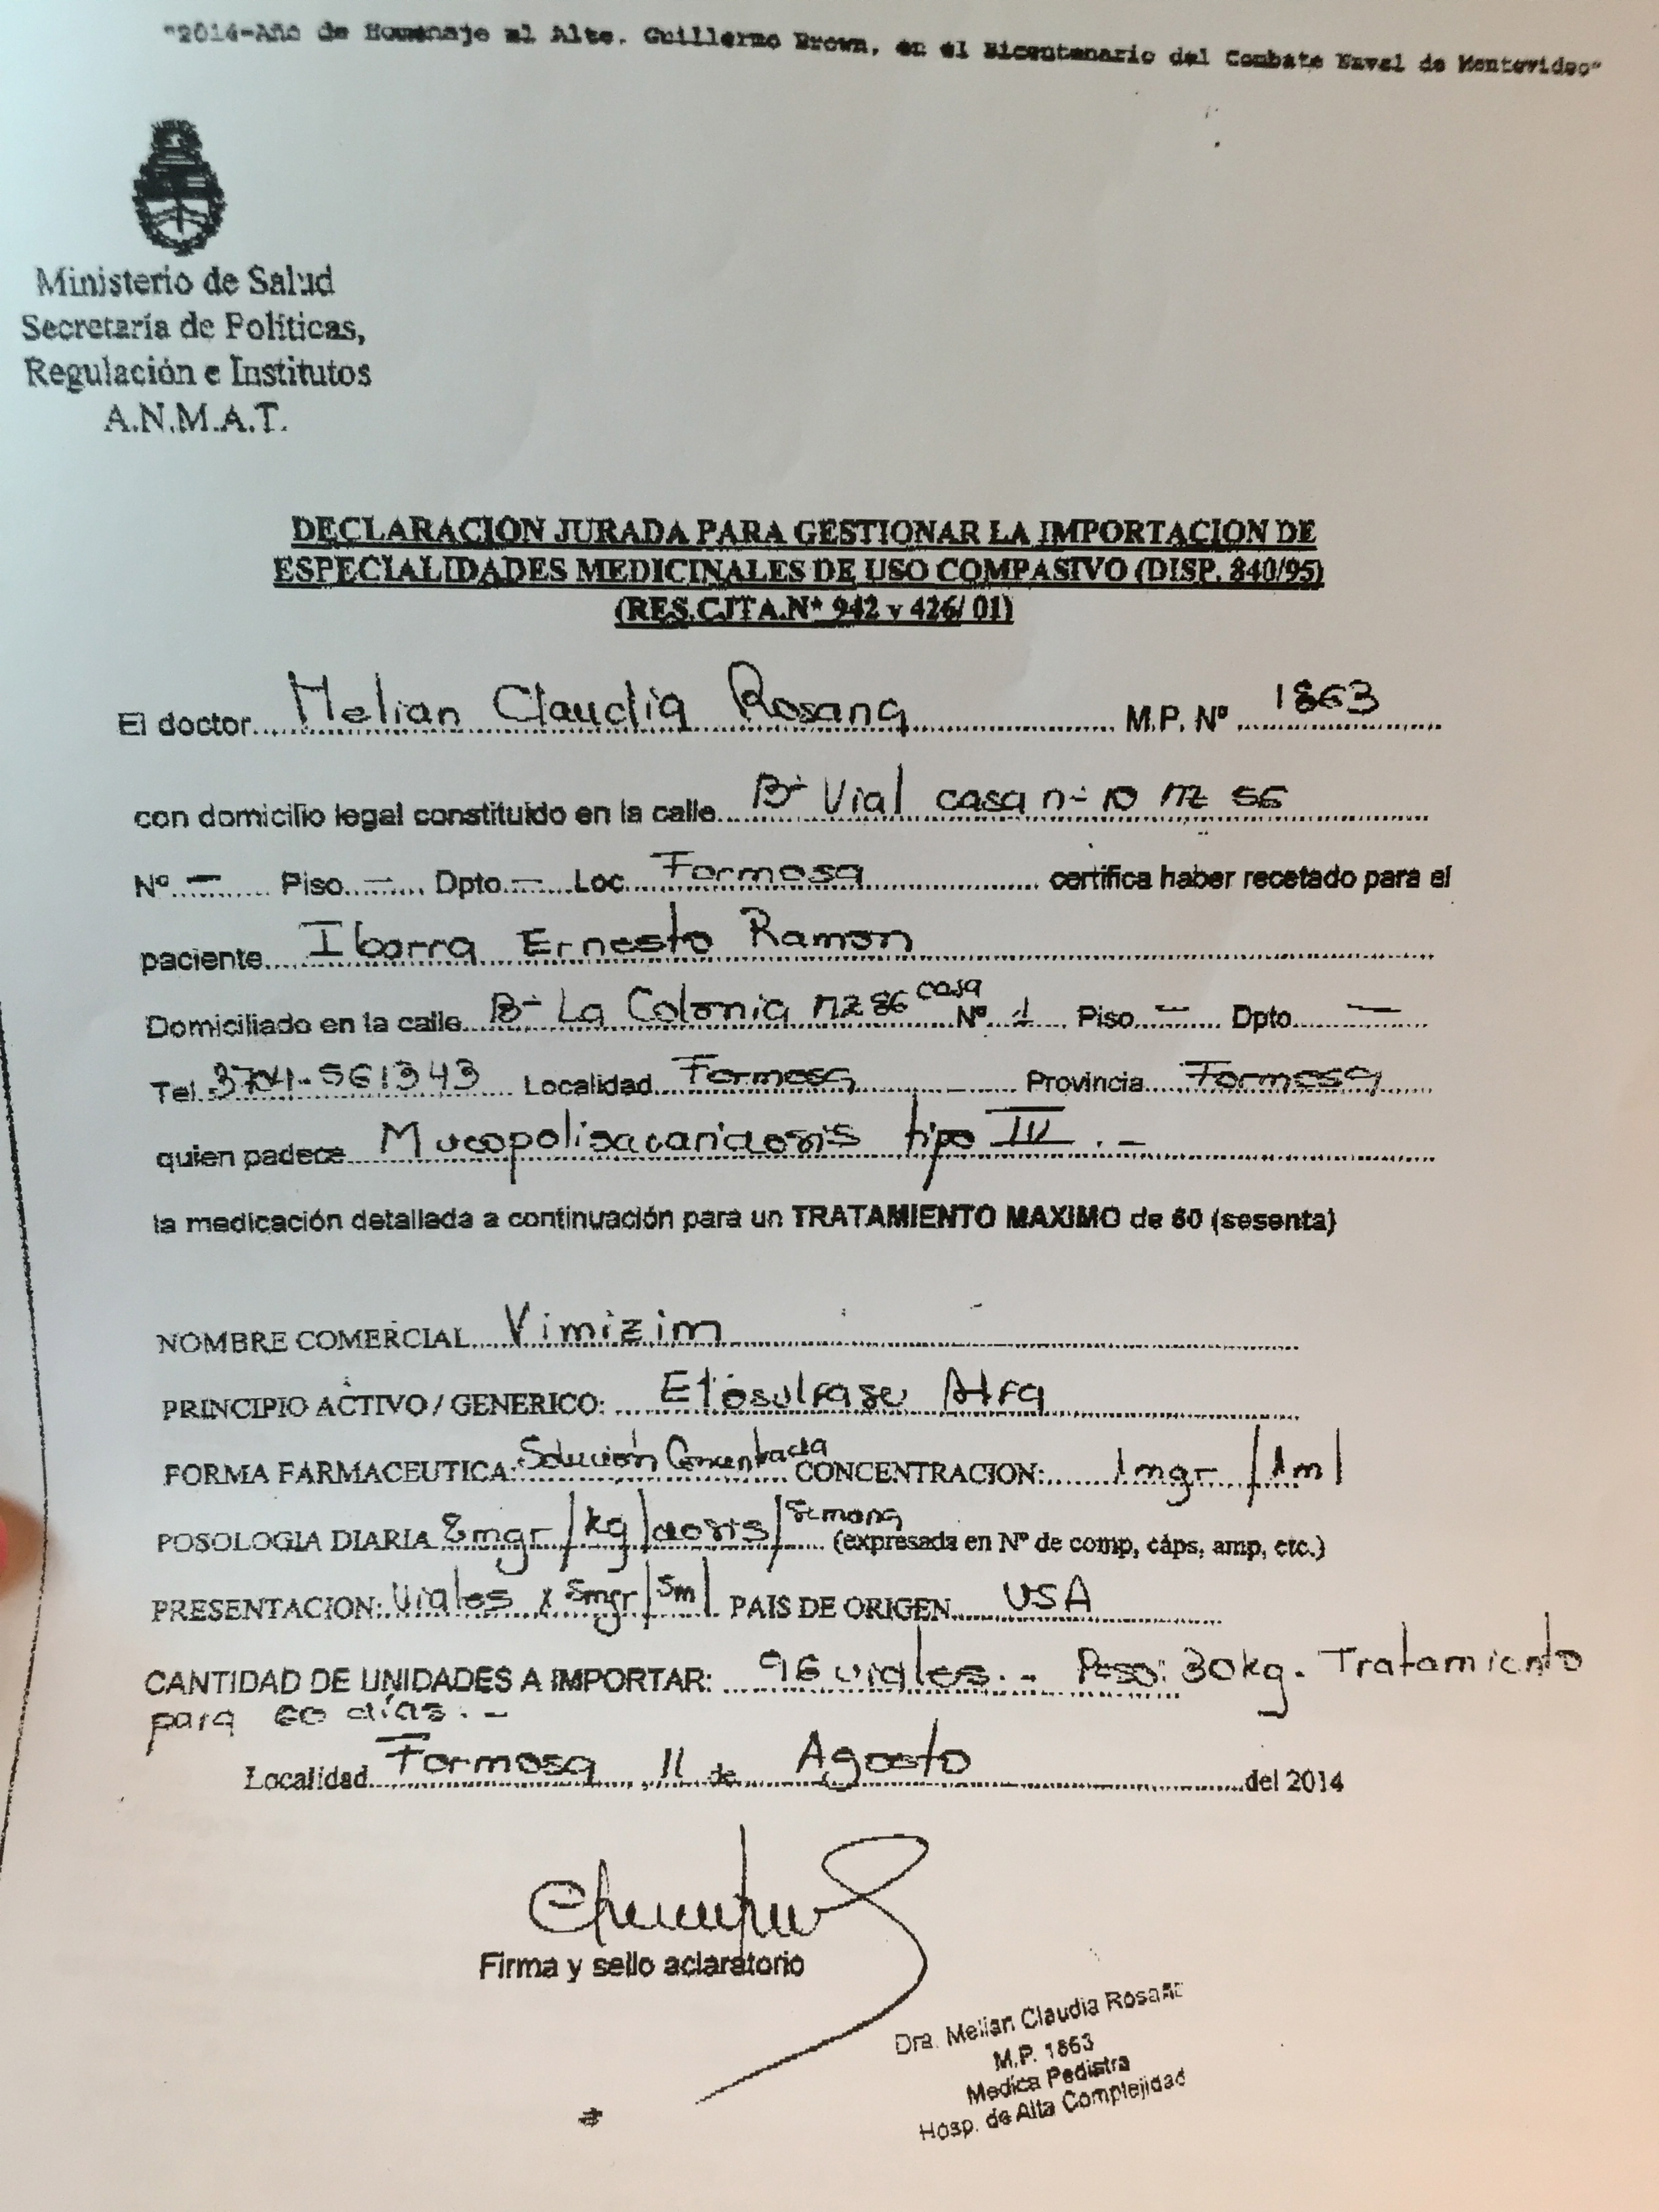 "2014-Año de Homenaje al Alte. Guillermo Brown, en el Bicentenario del Combate Naval de Montevideo"
Ministerio de Salud
Secretaría de Políticas,
Regulación e Institutos
A.N.M.A.T.
DECLARACION JURADA PARA GESTIONAR LA IMPORTACION DE
ESPECIALIDADES MEDICINALES DE USO COMPASIVO (DISP. 840/95)
(RES.CJTA.Nº 942 y 426/ 01)
El doctor Melian Claudia Rosana M.P. Nº 1863
con domicilio legal constituido en la calle Bº Vial casa nº 10 mz 56
Nº — Piso — Dpto — Loc. Formosa certifica haber recetado para el
paciente Ibarra Ernesto Ramon
Domiciliado en la calle Bº La Colonia mz 86 casa Nº 1 Piso — Dpto —
Tel 3704-561343 Localidad Formosa Provincia Formosa
quien padece Mucopolisacaridosis tipo IV . -
la medicación detallada a continuación para un TRATAMIENTO MAXIMO de 60 (sesenta)
NOMBRE COMERCIAL Vimizim
PRINCIPIO ACTIVO / GENERICO: Elosulfase Alfa
FORMA FARMACEUTICA: Solución Concentrada CONCENTRACION: 1mgr / 1ml
POSOLOGIA DIARIA 2mgr/kg/dosis/semana (expresada en Nº de comp, cáps, amp, etc.)
PRESENTACION: Viales x 5mgr/5ml PAIS DE ORIGEN USA
CANTIDAD DE UNIDADES A IMPORTAR: 96 viales. - Peso: 30kg. Tratamiento
para 60 días. -
Localidad Formosa, 11 de Agosto del 2014
Firma y sello aclaratorio
Dra. Melian Claudia Rosana
M.P. 1863
Medica Pediatra
Hosp. de Alta Complejidad